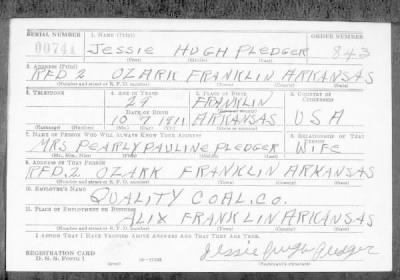 SERIAL NUMBER 1. NAME (Print) ORDER NUMBER
00741 JESSIE HUGH PLEDGER 843
(First) (Middle) (Last)
2. ADDRESS (Print)
RFD 2 OZARK FRANKLIN ARKANSAS
(Number and street or R. F. D. number) (Town) (County) (State)
3. TELEPHONE 4. AGE IN YEARS 5. PLACE OF BIRTH 6. COUNTRY OF CITIZENSHIP
29 FRANKLIN
DATE OF BIRTH
10 7 1911 ARKANSAS USA
(Exchange) (Number) (Mo.) (Day) (Yr.) (State or country)
7. NAME OF PERSON WHO WILL ALWAYS KNOW YOUR ADDRESS 8. RELATIONSHIP OF THAT PERSON
MRS PEARLY PAULINE PLEDGER WIFE
(Mr., Mrs., Miss) (First) (Middle) (Last)
9. ADDRESS OF THAT PERSON
RFD.2. OZARK FRANKLIN ARKANSAS
(Number and street or R. F. D. number) (Town) (County) (State)
10. EMPLOYER'S NAME
QUALITY COAL.CO.
11. PLACE OF EMPLOYMENT OR BUSINESS
ALIX FRANKLIN ARKANSAS
(Number and street or R. F. D. number) (Town) (County) (State)
I AFFIRM THAT I HAVE VERIFIED ABOVE ANSWERS AND THAT THEY ARE TRUE.
REGISTRATION CARD
D. S. S. FORM 1 (over) Jessie Hugh Pledger
(Registrant's signature)